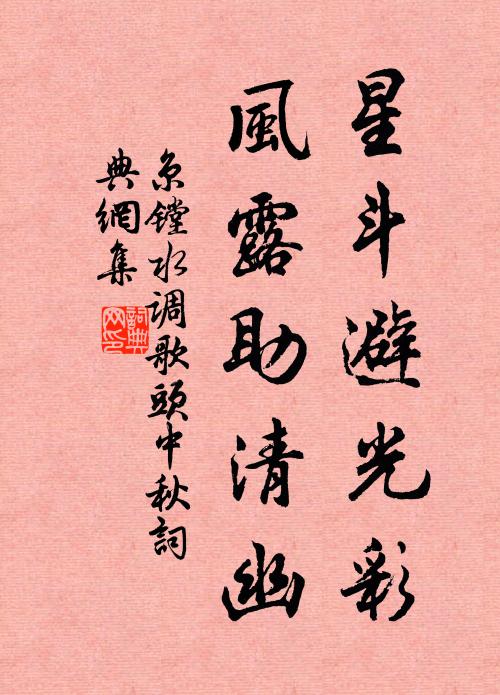 星斗避光彩
風露助清幽
京鏜水调歌頭中秋詞
典網集
詞典网印